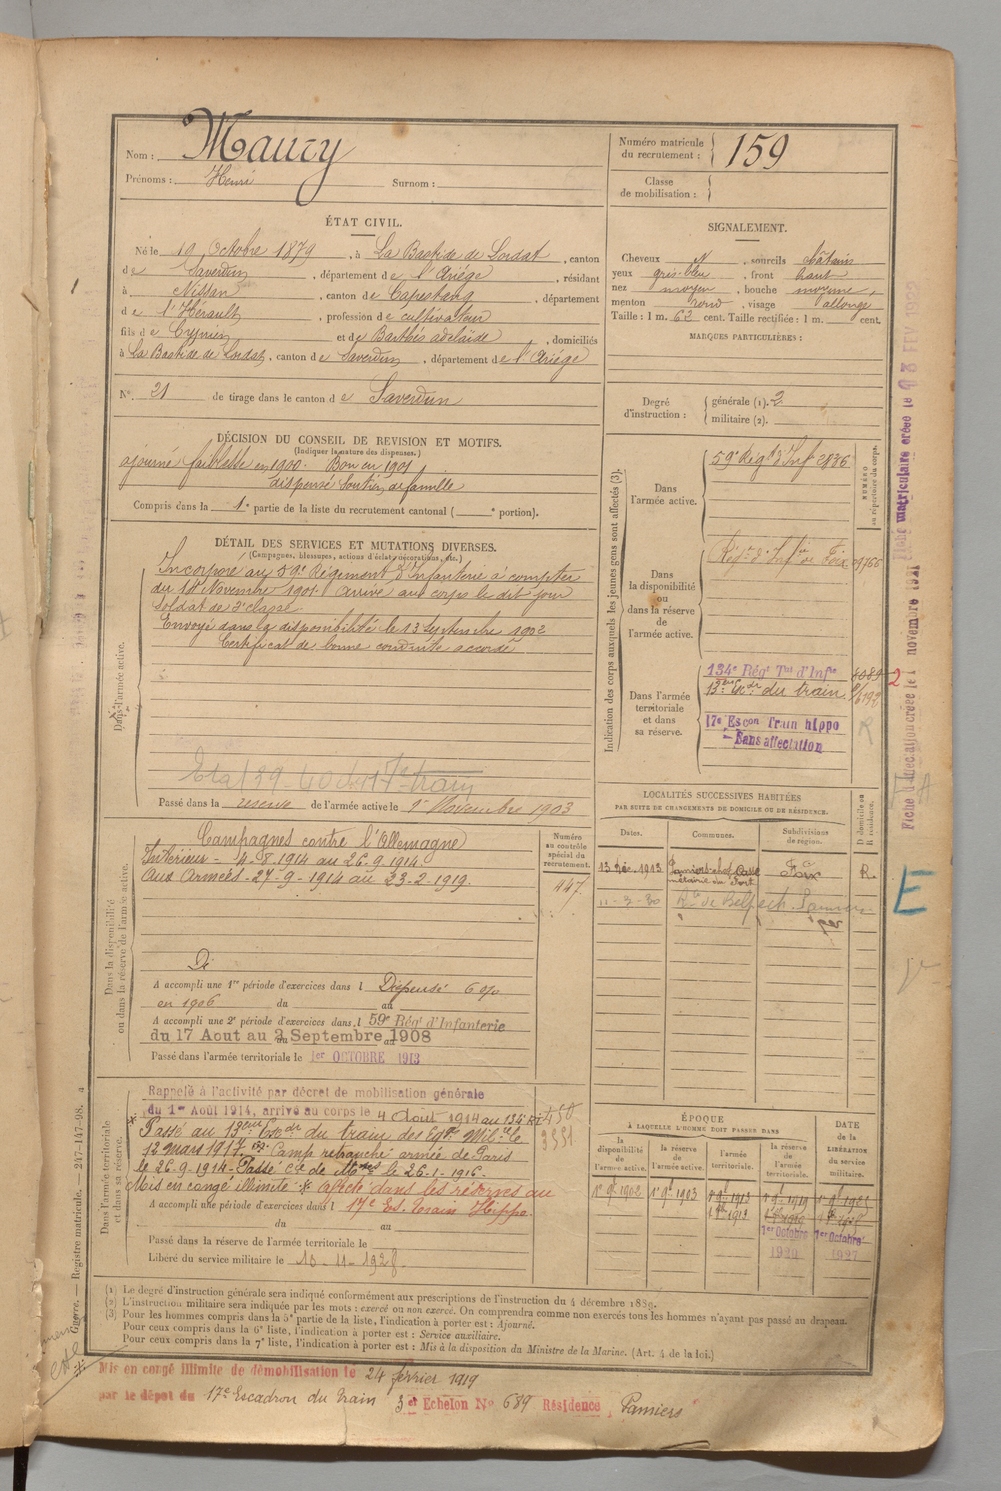 Nom : Maury
Prénoms : Henri Surnom :
Numéro matricule du recrutement : 159
Classe de mobilisation :
ÉTAT CIVIL.
Né le 19 Octobre 1879, à La Bastide de Lordat, canton
de Saverdun, département de l'Ariége, résidant
à Nissan, canton de Capestang, département
de l'Hérault, profession de cultivateur
fils de Cyprien et de Barthès adélaïde, domiciliés
à La Bastide de Lordat, canton de Saverdun, département de l'Ariége
N° 21 de tirage dans le canton de Saverdun
SIGNALEMENT.
Cheveux N, sourcils châtains
yeux gris-bleu, front haut
nez moyen, bouche moyenne,
menton rond, visage allongé
Taille : 1 m. 62 cent. Taille rectifiée : 1 m. cent.
MARQUES PARTICULIÈRES :
Degré d'instruction : générale (1). 2
militaire (2).
DÉCISION DU CONSEIL DE REVISION ET MOTIFS.
(Indiquer la nature des dispenses.)
ajourné faiblesse en 1900. Bon en 1901
dispensé soutien de famille
Compris dans la 1e partie de la liste du recrutement cantonal ( e portion).
DÉTAIL DES SERVICES ET MUTATIONS DIVERSES.
(Campagnes, blessures, actions d'éclat, décorations, etc.)
Dans l'armée active.
Incorporé au 59e Régiment d'Infanterie à compter
du 14 Novembre 1901. Arrivé au corps le dit jour
Soldat de 2e classe
Envoyé dans la disponibilité le 13 Septembre 1902
Certificat de bonne conduite accordé
Etat 39-40 du 17e train
Passé dans la réserve de l'armée active le 1r Novembre 1903
Indication des corps auxquels les jeunes gens sont affectés (3).
NUMÉRO au répertoire du corps.
Dans l'armée active.
59e Régt d'Inf 2836
Dans la disponibilité ou dans la réserve de l'armée active.
Régt d'Infie de Foix
Dans l'armée territoriale et dans sa réserve.
134e Régt Tal d'Infie
13ème Eon du train
17e Escon Train hippo
Sans affectation
R
Dans la disponibilité ou dans la réserve de l'armée active.
Campagnes contre l'Allemagne
Intérieur - 4-8-1914 au 26-9-1914
Aux Armées - 27-9-1914 au 23-2-1919.
Numéro au contrôle spécial du recrutement.
447
A accompli une 1re période d'exercices dans l Dispensé 6 0/0
en 1906 du au
A accompli une 2e période d'exercices dans l 59e Régt d'Infanterie
du 17 Aout au 2 Septembre 1908
Passé dans l'armée territoriale le 1er OCTOBRE 1913
LOCALITÉS SUCCESSIVES HABITÉES
PAR SUITE DE CHANGEMENTS DE DOMICILE OU DE RÉSIDENCE.
Dates. Communes. Subdivisions de région. D domicile ou R résidence.
13 Déc. 1913 Foix R
11-3-30 Rte de Belpech Pamiers
E
Dans l'armée territoriale et dans sa réserve.
Rappelé à l'activité par décret de mobilisation générale
du 1er Août 1914, arrivé au corps le 4 Août 1914 au 134e RI
Passé au 13ème Eon du train des Eqes Milres le
12 mars 1917. Camp retranché armée de Paris
le 26-9-1914 - Passé le 26-1-1916.
Mis en congé illimité * affecté dans les réserves au
A accompli une période d'exercices dans l 17e Es. Train Hippo.
du au
Passé dans la réserve de l'armée territoriale le
Libéré du service militaire le 10-11-1928
ÉPOQUE
À LAQUELLE L'HOMME DOIT PASSER DANS
la disponibilité de l'armée active. la réserve de l'armée active. l'armée territoriale. la réserve de l'armée territoriale. DATE de la LIBÉRATION du service militaire.
1er 9e 1902 1er 9e 1903 1er 9e 1913 1er 9e 1919 1er 9e 1925
1er 8e 1913
1er Octobre 1er Octobre
1920 1927
(1) Le degré d'instruction générale sera indiqué conformément aux prescriptions de l'instruction du 4 décembre 1889.
(2) L'instruction militaire sera indiquée par les mots : exercé ou non exercé. On comprendra comme non exercés tous les hommes n'ayant pas passé au drapeau.
(3) Pour les hommes compris dans la 5e partie de la liste, l'indication à porter est : Ajourné.
Pour ceux compris dans la 6e liste, l'indication à porter est : Service auxiliaire.
Pour ceux compris dans la 7e liste, l'indication à porter est : Mis à la disposition du Ministre de la Marine. (Art. 4 de la loi.)
Mis en congé illimité de démobilisation le 24 février 1919
par le dépot du 17e Escadron du train 3et Echelon No 689 Résidence, Pamiers
Guerre. — Registre matricule. — 247-147-98.